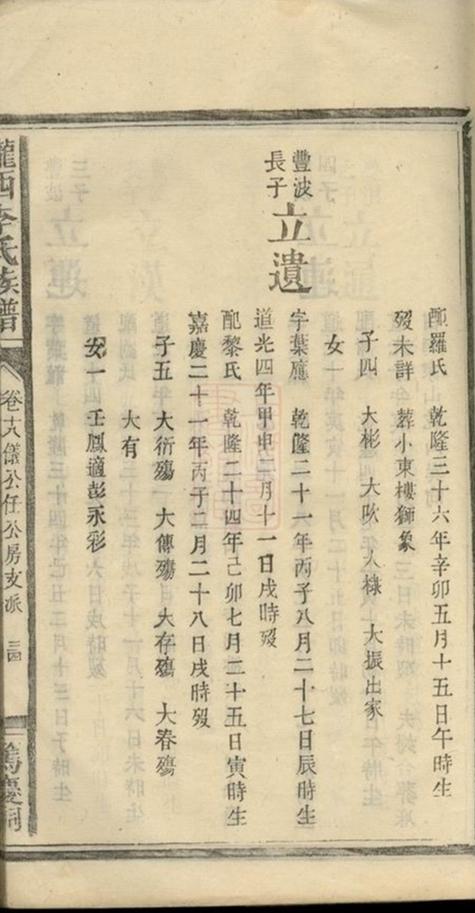 配羅氏 乾隆三十六年辛卯五月十五日午時生
歿未詳 葬小東樓獅象
子四 大彬 大吹 大棣 大振出家
女一
豐波長子 立遺
字葉應 乾隆二十一年丙子八月二十七日辰時生
道光四年甲申二月十一日戌時歿
配黎氏 乾隆二十四年己卯七月二十五日寅時生
嘉慶二十一年丙子二月二十八日戌時歿
子五 大衍殤 大傳殤 大存殤 大春殤
大有
女一 壬鳳適彭永彩
隴西李氏族譜
卷十九儀公任公房支派 三四
篤慶祠